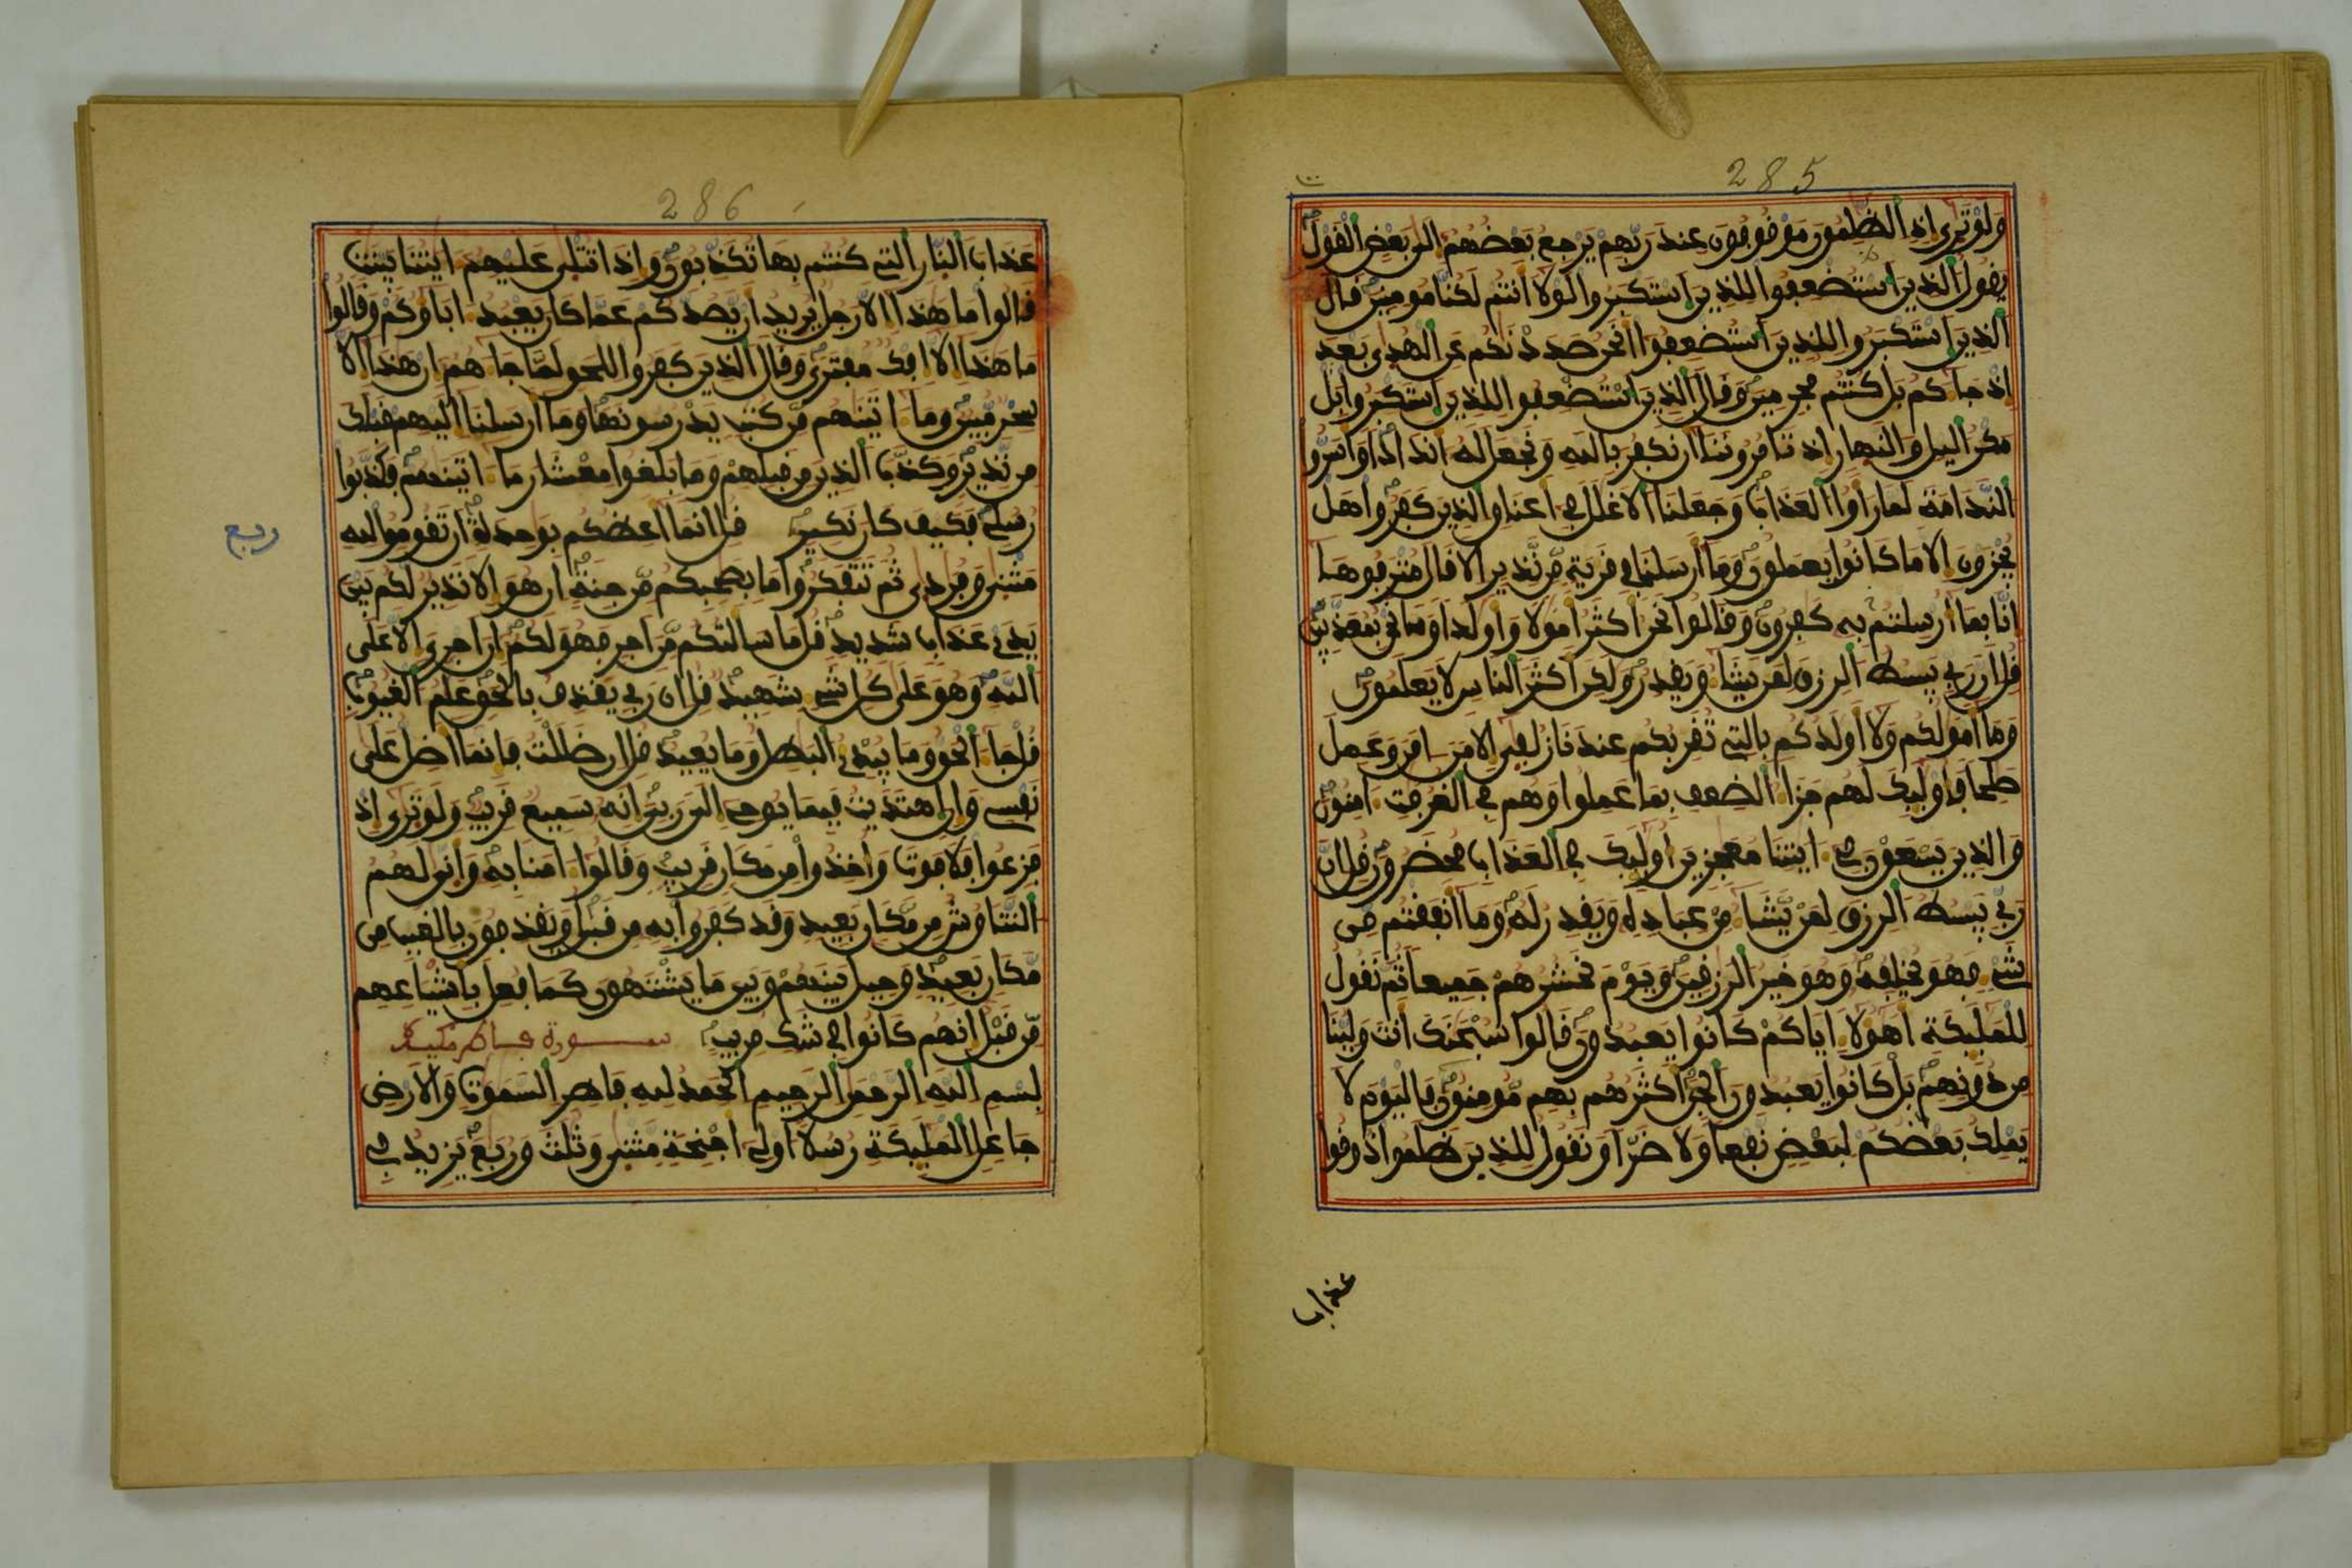 285
ولو ترى اذ الظلمون موقوفون عند ربهم يرجع بعضهم الى بعض القول
يقول الذين استضعفوا للذين استكبروا لولا انتم لكنا مومنين قال
الذين استكبروا للذين استضعفوا انحن صددنكم عن الهدى بعد
اذ جاكم بل كنتم مجرمين وقال الذين استضعفوا للذين استكبروا بل
مكر اليل والنهار اذ تامروننا ان نكفر بالله ونجعل له اندادا واسروا
الندامة لما راوا العذاب وجعلنا الاغلل في اعناق الذين كفروا هل
يجزون الا ما كانوا يعملون وما ارسلنا في قرية من نذير الا قال مترفوها
انا بما ارسلتم به كفرون وقالوا نحن اكثر امولا واولدا وما نحن بمعذبين
قل ان ربي يبسط الرزق لمن يشا ويقدر ولكن اكثر الناس لا يعلمون
وما امولكم ولا اولدكم بالتي تقربكم عندنا زلفى الا من امن وعمل
صلحا فاوليك لهم جزا الضعف بما عملوا وهم في الغرفت امنون
والذين يسعون في ايتنا معجزين اوليك في العذاب محضرون قل ان
ربي يبسط الرزق لمن يشا من عباده ويقدر له وما انفقتم من
شي فهو يخلفه وهو خير الرزقين ويوم نحشرهم جميعا ثم نقول
للمليكة اهولا اياكم كانوا يعبدون قالوا سبحنك انت ولينا
من دونهم بل كانوا يعبدون الجن اكثرهم بهم مومنون فاليوم لا
يملك بعضكم لبعض نفعا ولا ضرا ونقول للذين ظلموا ذوقوا
عذاب
286
عذاب النار التي كنتم بها تكذبون واذا تتلى عليهم ايتنا بينت
قالوا ما هذا الا رجل يريد ان يصدكم عما كان يعبد اباوكم وقالوا
ما هذا الا افك مفترى وقال الذين كفروا للحق لما جاهم ان هذا الا
سحر مبين وما اتينهم من كتب يدرسونها وما ارسلنا اليهم قبلك
من نذير وكذب الذين من قبلهم وما بلغوا معشار ما اتينهم فكذبوا
رسلي فكيف كان نكير قل انما اعظكم بوحدة ان تقوموا لله
ربع
مثنى وفردى ثم تتفكروا ما بصحبكم من جنة ان هو الا نذير لكم بين
يدي عذاب شديد قل ما سالتكم من اجر فهو لكم ان اجري الا على
الله وهو على كل شي شهيد قل ان ربي يقذف بالحق علم الغيوب
قل جا الحق وما يبدئ البطل وما يعيد قل ان ضللت فانما اضل على
نفسي وان اهتديت فبما يوحي الى ربي انه سميع قريب ولو ترى اذ
فزعوا فلا فوت واخذوا من مكان قريب وقالوا امنا به وانى لهم
التناوش من مكان بعيد وقد كفروا به من قبل ويقذفون بالغيب من
مكان بعيد وحيل بينهم وبين ما يشتهون كما فعل باشياعهم
من قبل انهم كانوا في شك مريب سورة فاطر مكية
بسم الله الرحمن الرحيم الحمد لله فاطر السموت والارض
جاعل المليكة رسلا اولي اجنحة مثنى وثلث وربع يزيد في